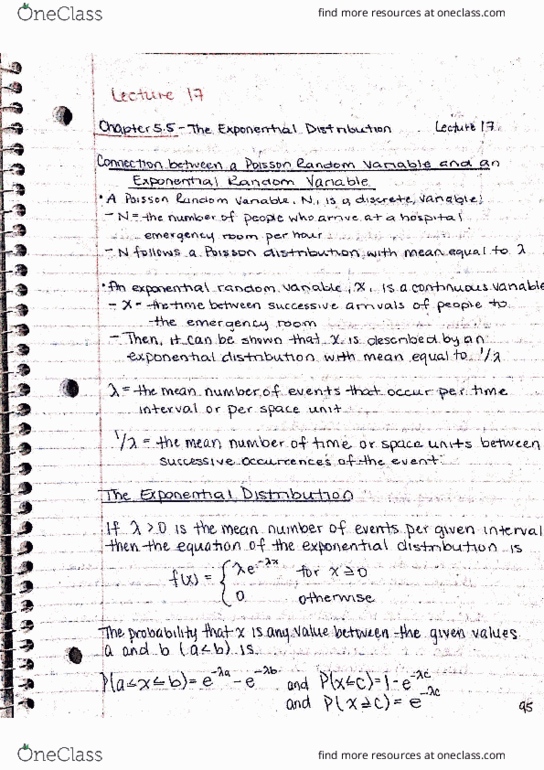 OneClass
find more resources at oneclass.com
Lecture 17
Chapter 5.5 - The Exponential Distribution Lecture 17
Connection between a Poisson Random Variable and an
Exponential Random Variable
• A Poisson Random Variable, N, is a discrete variable:
- N = the number of people who arrive at a hospital
emergency room per hour
- N follows a Poisson distribution, with mean equal to λ
• An exponential random variable, x, is a continuous variable
- x - the time between successive arrivals of people to
the emergency room
- Then, it can be shown that x is described by an
exponential distribution with mean equal to 1/λ
λ = the mean number of events that occur per time
interval or per space unit
1/λ = the mean number of time or space units between
successive occurrences of the event.
The Exponential Distribution
If λ > 0 is the mean number of events per given interval
then the equation of the exponential distribution is
f(x) = { λe^-λx for x ≥ 0
0 otherwise
The probability that x is any value between the given values
a and b (a < b) is
P(a ≤ x ≤ b) = e^-λa - e^-λb and P(x ≤ c) = 1 - e^-λc
and P(x ≥ c) = e^-λc
95
OneClass
find more resources at oneclass.com